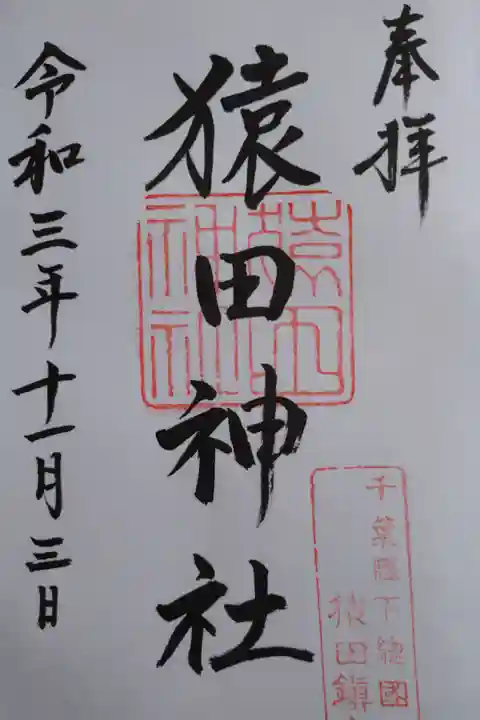 奉拝
猿田神社
猿田神社
令和三年十一月三日
千葉縣下総國
猿田鎮